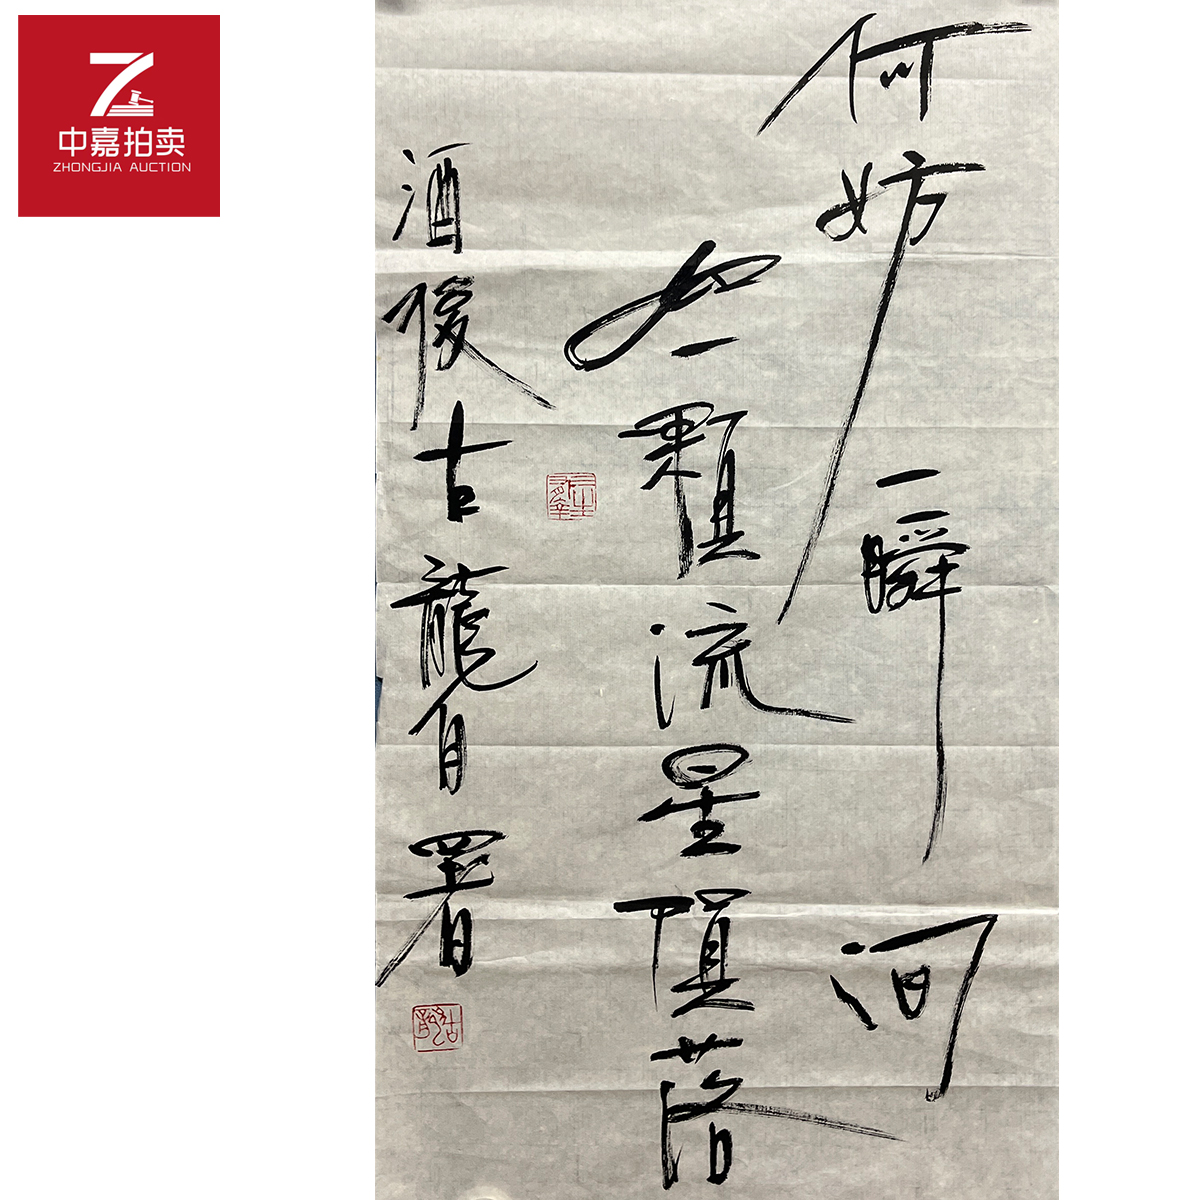 中嘉拍卖
ZHONGJIA AUCTION
何妨一瞬间
如一颗流星陨落
酒後古龍自署